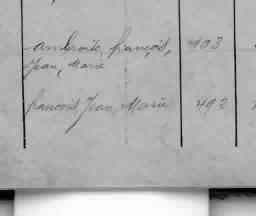 Ambroise, françois, 403
Jean, Marie
francois Jean Marie 492